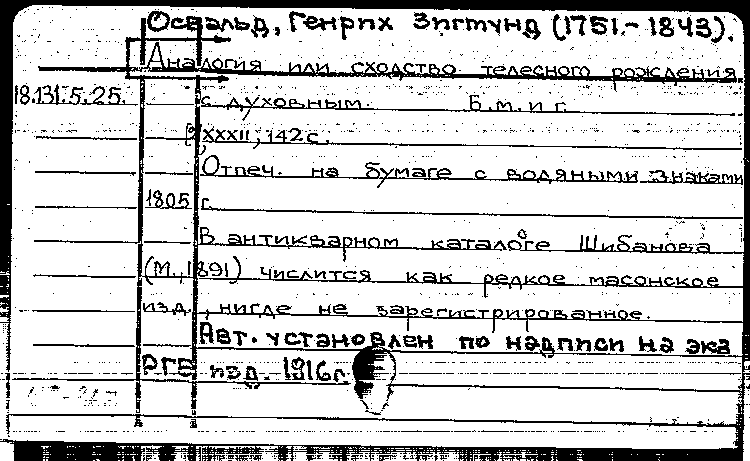 Освальд, Генрих Зигмунд (1751.- 1843).
Аналогия или сходство телесного рождения
18.131.5.25. с духовным. Б.м. и г.
XXXII, 142 с.
Отпеч. на бумаге с водяными знаками
1805 г.
В антикварном каталоге Шибанова
(М., 1891) числится как редкое масонское
изд., нигде не зарегистрированное.
Авт. установлен по надписи на экз
РГБ изд. 1816г.